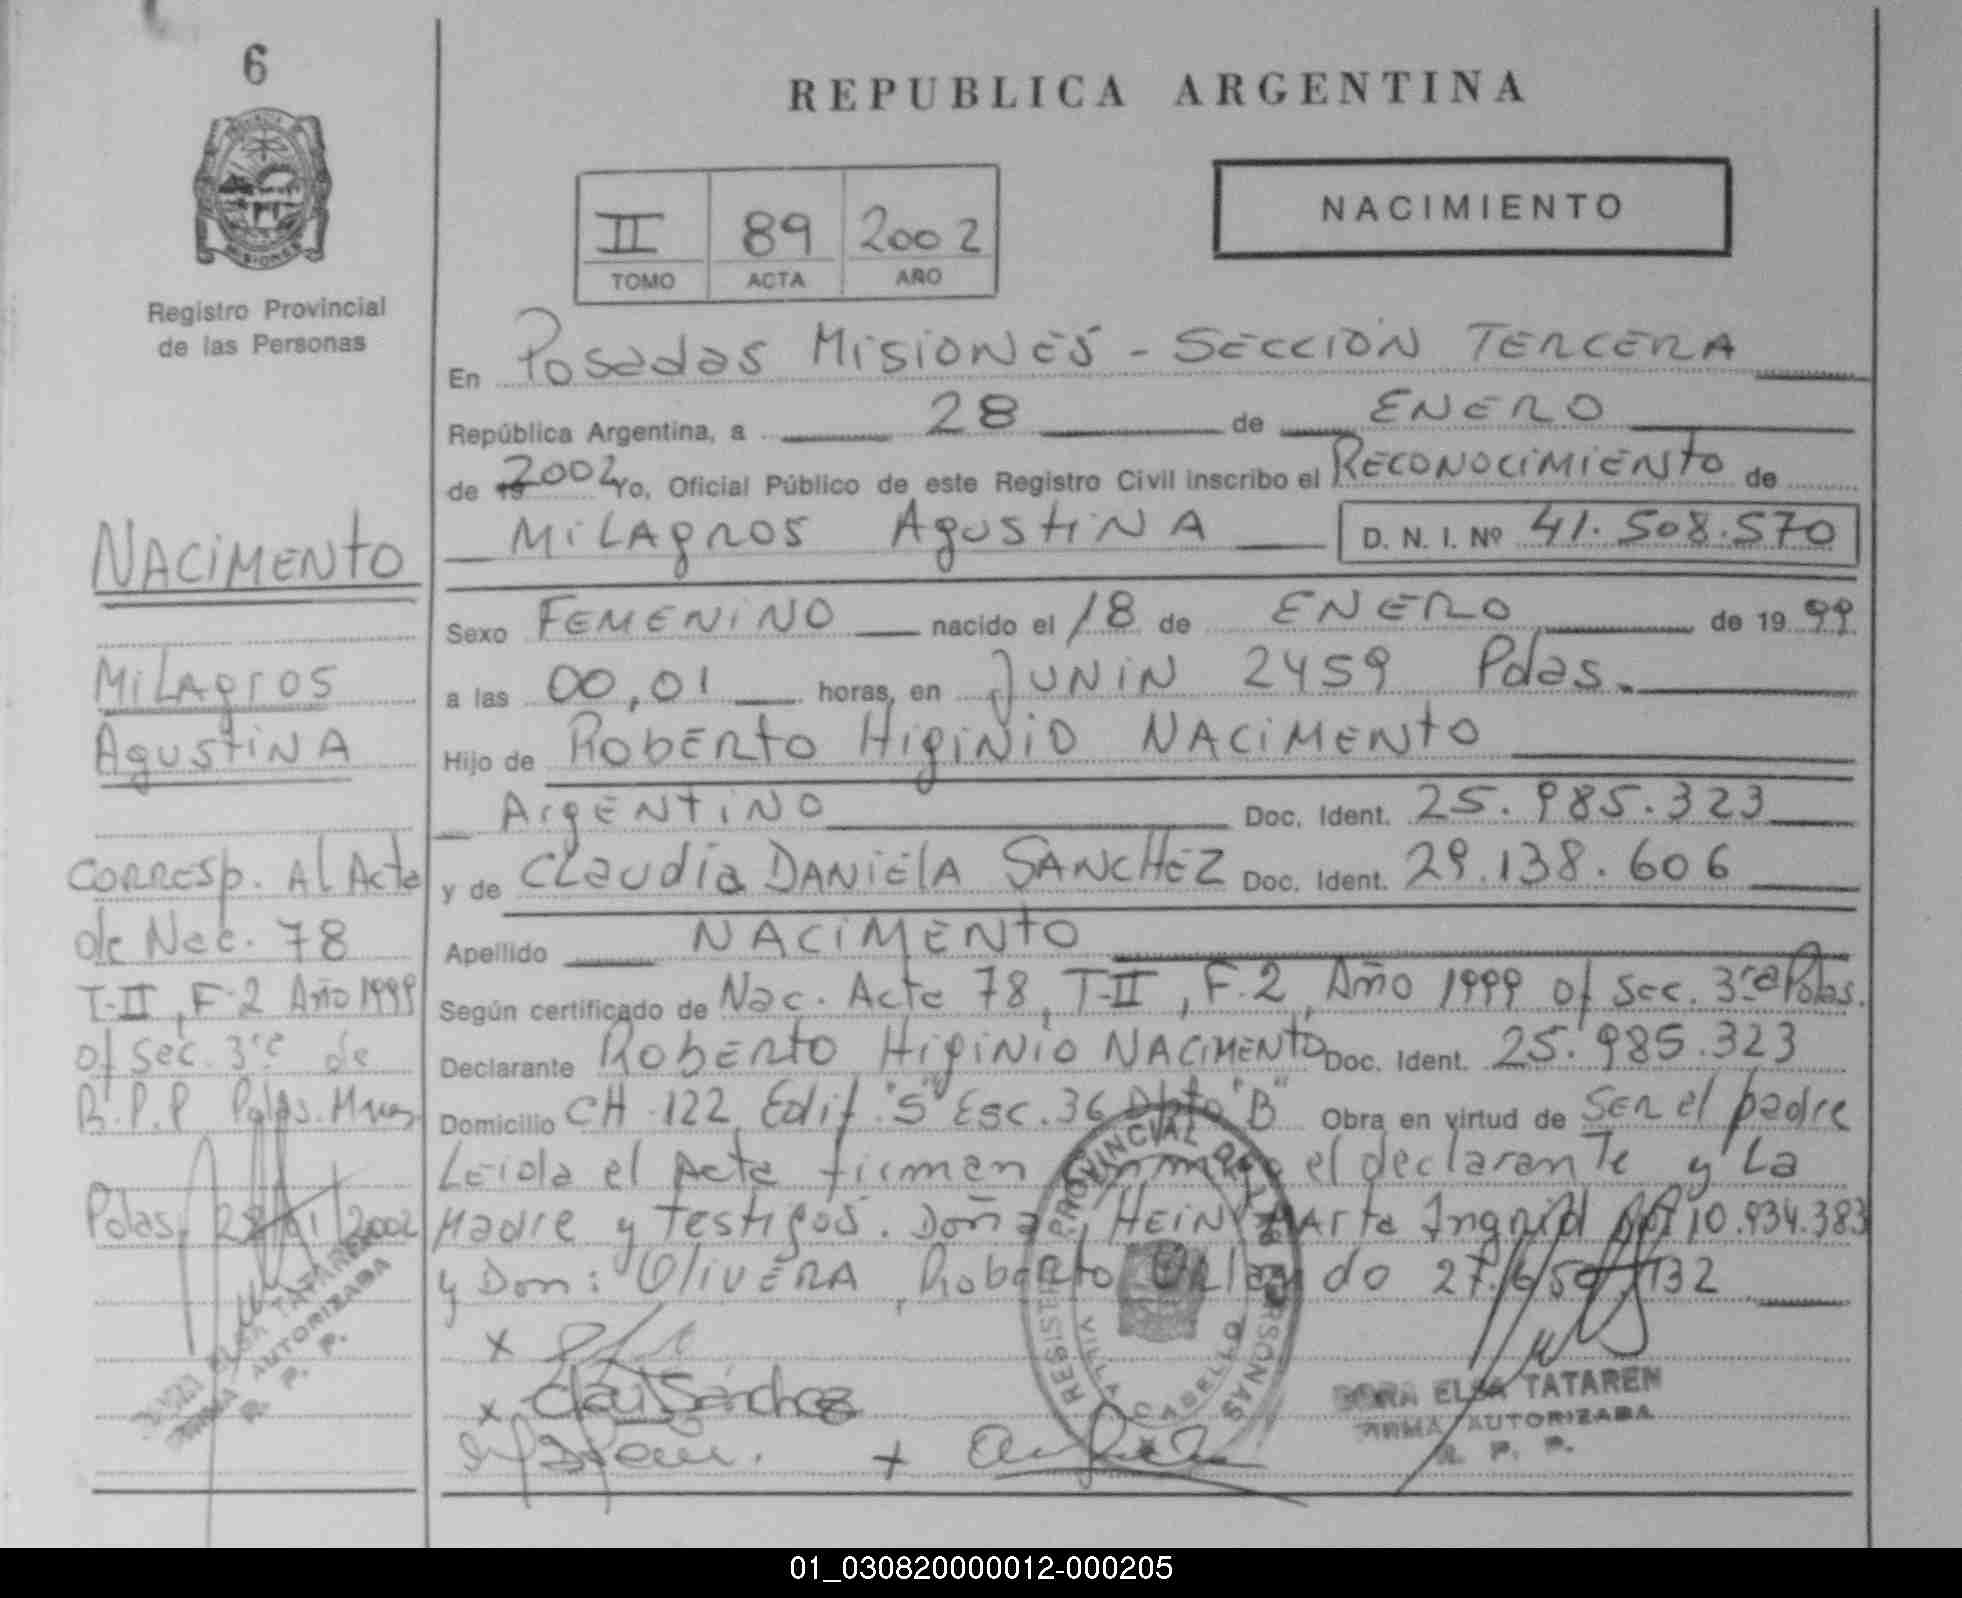 6
Registro Provincial
de las Personas
NACIMENTO
MILAGROS
AGUSTINA
CORRESP. Al Acta
de Nac. 78
T-II, F-2 Año 1999
of Sec. 3ra de
R.P.P. Pdas. Mnes
Pdas, 28/01/2002
ELSA TATAREN
FIRMA AUTORIZADA
R. P. P.
REPUBLICA ARGENTINA
II 89 2002
TOMO ACTA AÑO
NACIMIENTO
En Posadas MISIONES - SECCIÓN TERCERA
República Argentina, a 28 de ENERO
de 19 2002 Yo, Oficial Público de este Registro Civil inscribo el RECONOCIMIENTO de
MILAGROS AGUSTINA D. N. I. Nº 41.508.570
Sexo FEMENINO nacido el 18 de ENERO de 19 99
a las 00,01 horas, en JUNIN 2459 Pdas.
Hijo de ROBERTO HIGINIO NACIMENTO
ARGENTINO Doc. Ident. 25.985.323
y de CLaudia DANIELA SANCHEZ Doc. Ident. 29.138.606
Apellido NACIMENTO
Según certificado de Nac. Acta 78, T-II, F.2, Año 1999 of Sec. 3ra Pdas.
Declarante ROBERTO HIGINIO NACIMENTO Doc. Ident. 25.985.323
Domicilio CH.122 Edif. "S" Esc.36 Dpto "B" Obra en virtud de Ser el padre
Leida el Acta firman conmigo el declarante y La
Madre y testigos. Doña, HEINY MARta Ingrid 10.934.383
y Don: OLIVERA, Roberto Orlando 27.
x
x Clau Sánchez
+
REGISTRO PROVINCIAL DE LAS PERSONAS
VILLA CABELLO
ELSA TATAREN
FIRMA AUTORIZADA
R. P. P.
01_030820000012-000205